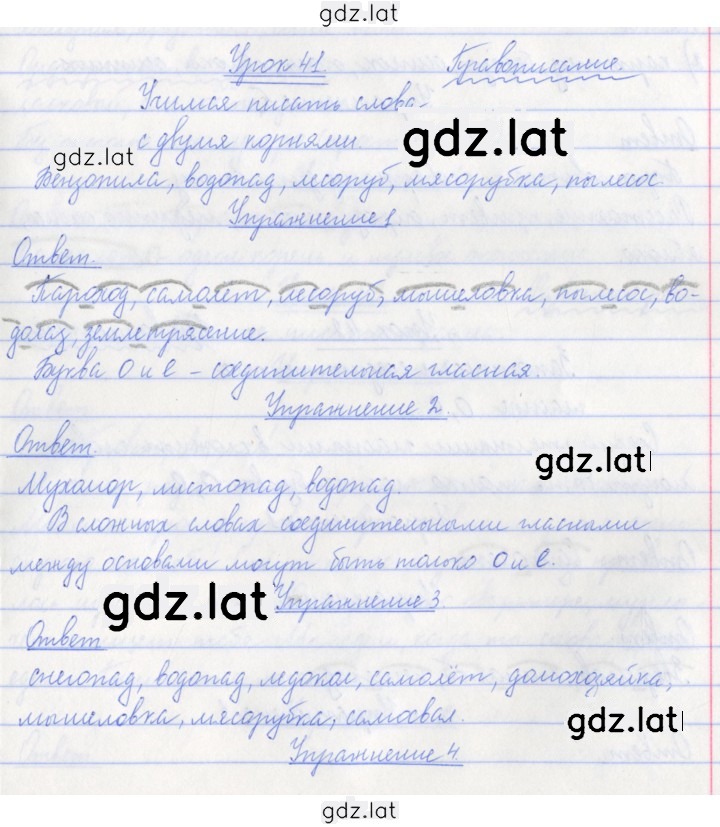 gdz.lat
Урок 41. Правописание.
Учимся писать слова
с двумя корнями. gdz.lat
gdz.lat
Бензопила, водопад, лесоруб, мясорубка, пылесос.
Упражнение 1
Ответ.
Пароход, самолёт, лесоруб, мышеловка, пылесос, во-
долаз, землетрясение.
Буква О и е – соединительная гласная.
Упражнение 2.
Ответ.
gdz.lat
Мухомор, листопад, водопад.
В сложных словах соединительными гласными
между основами могут быть только О и е.
gdz.lat Упражнение 3
Ответ
снегопад, водопад, ледокол, самолёт, домохозяйка,
мышеловка, мясорубка, самосвал.
gdz.lat
Упражнение 4.
gdz.lat